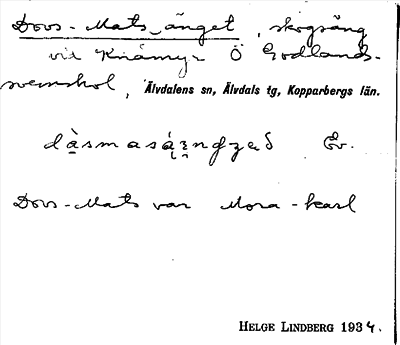 Dovs-Mats_änget, skogsäng
vid Knåmyr Ö Godlands-
svemshol, Älvdalens sn, Älvdals tg, Kopparbergs län.
Ev.
Dovs-Mats var Mora-karl
HELGE LINDBERG 1934.